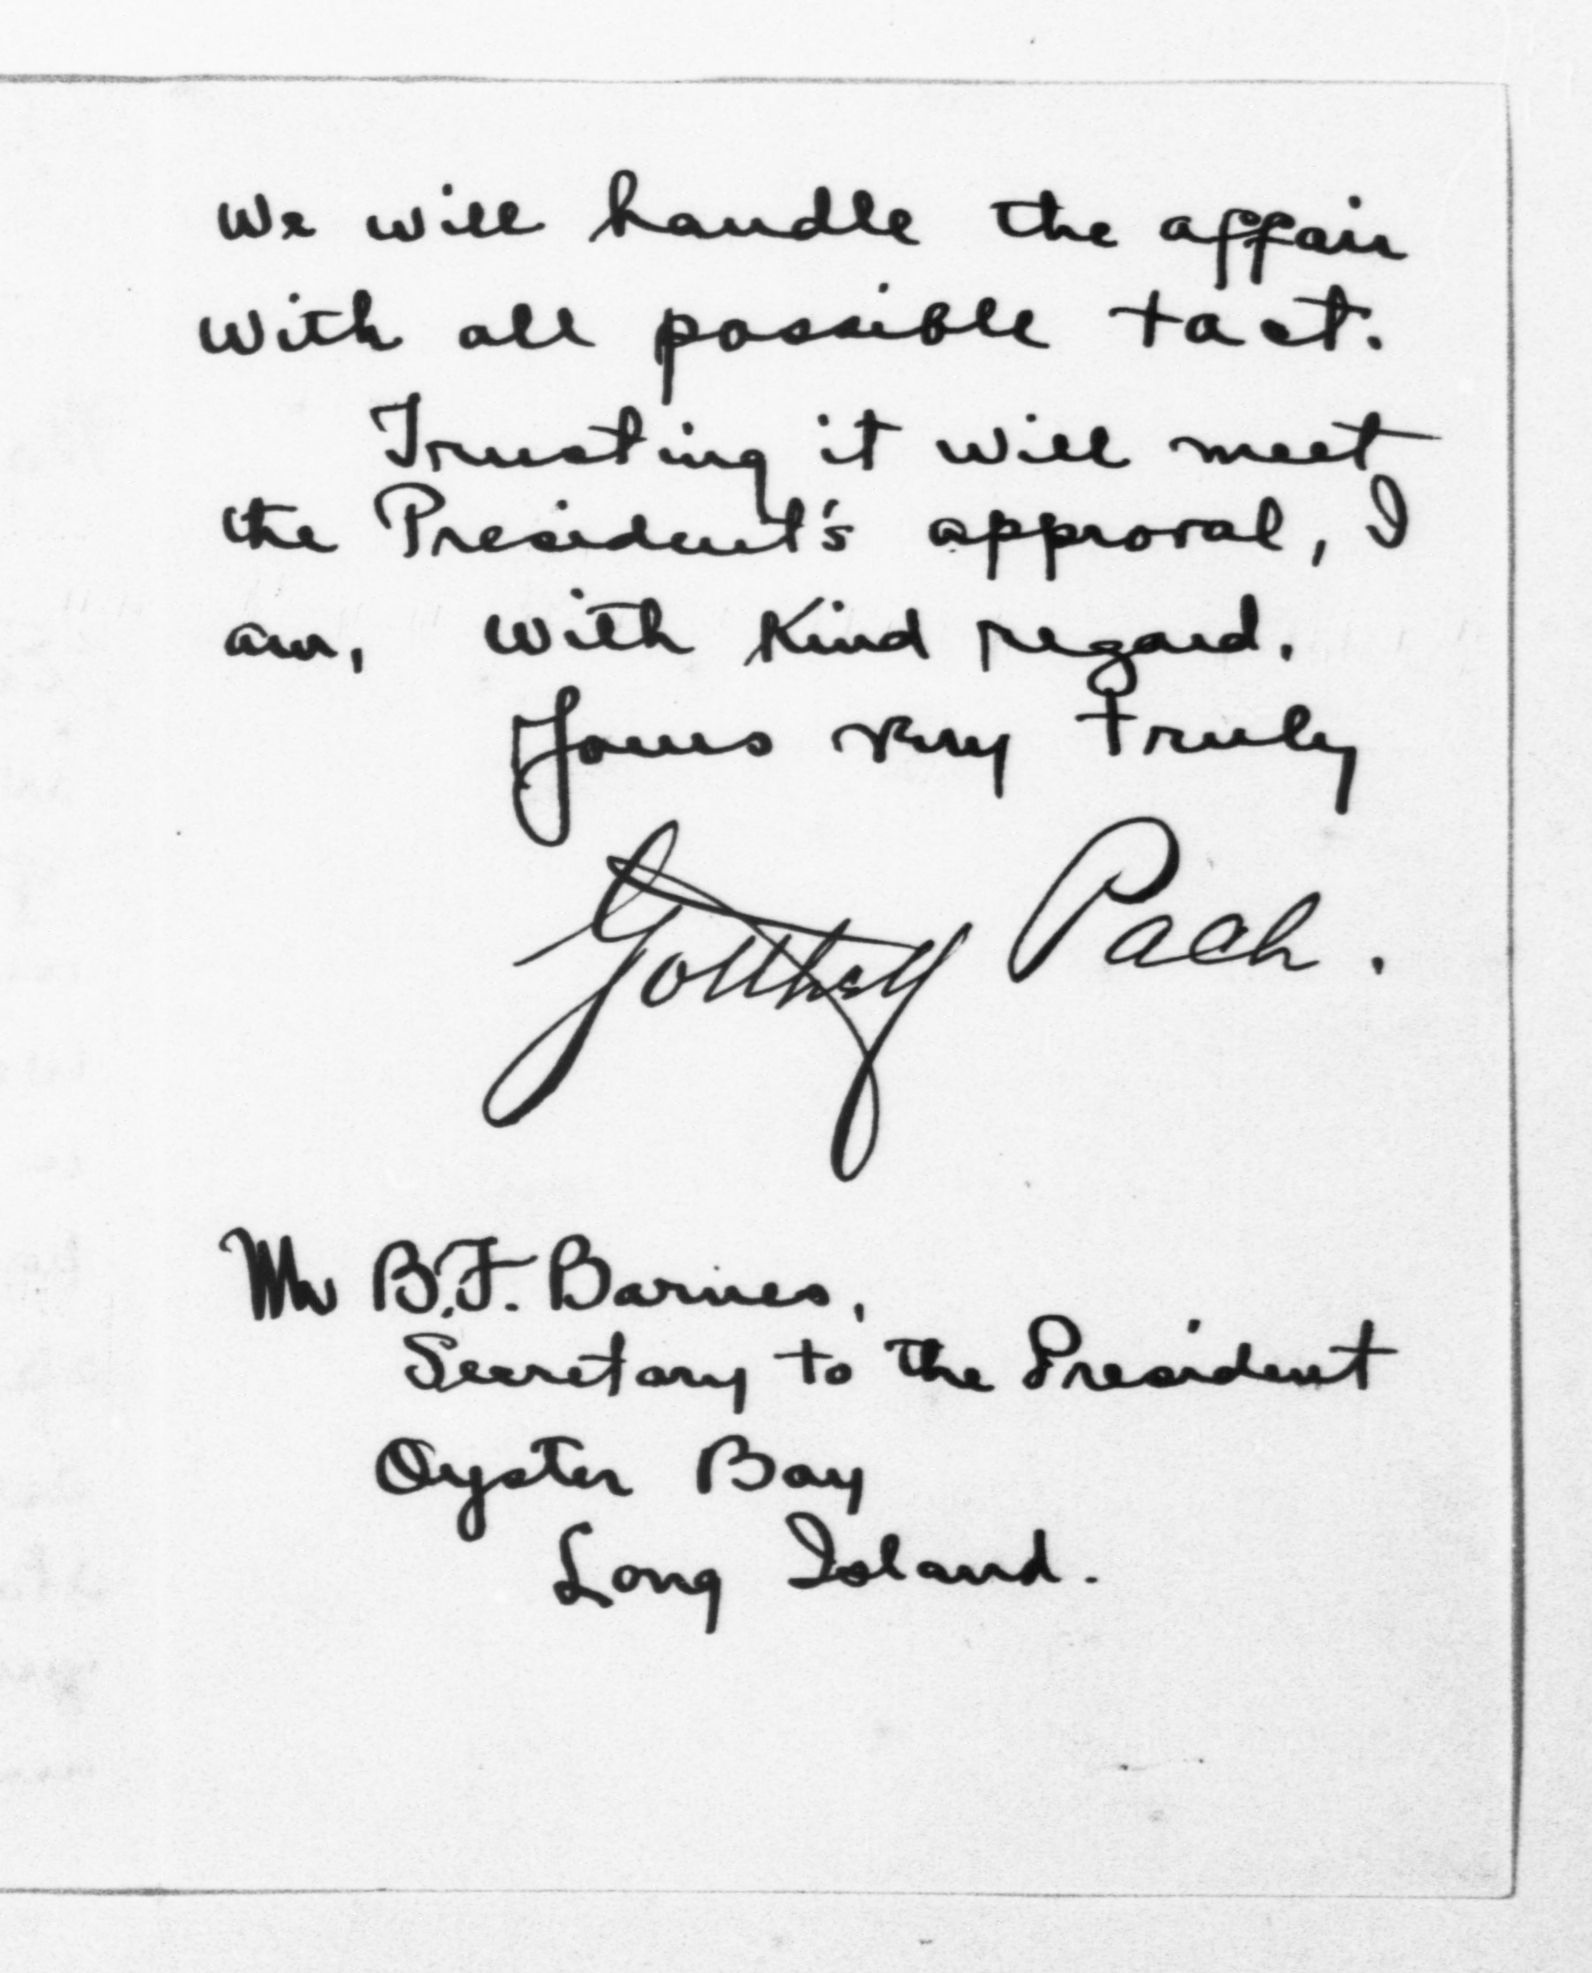 We will handle the affair
with all possible tact.
Trusting it will meet
the President's approval, I
am, with kind regard.
Yours very truly
Gotthelf Pach.
Mr B.F. Barnes,
Secretary to the President
Oyster Bay
Long Island.